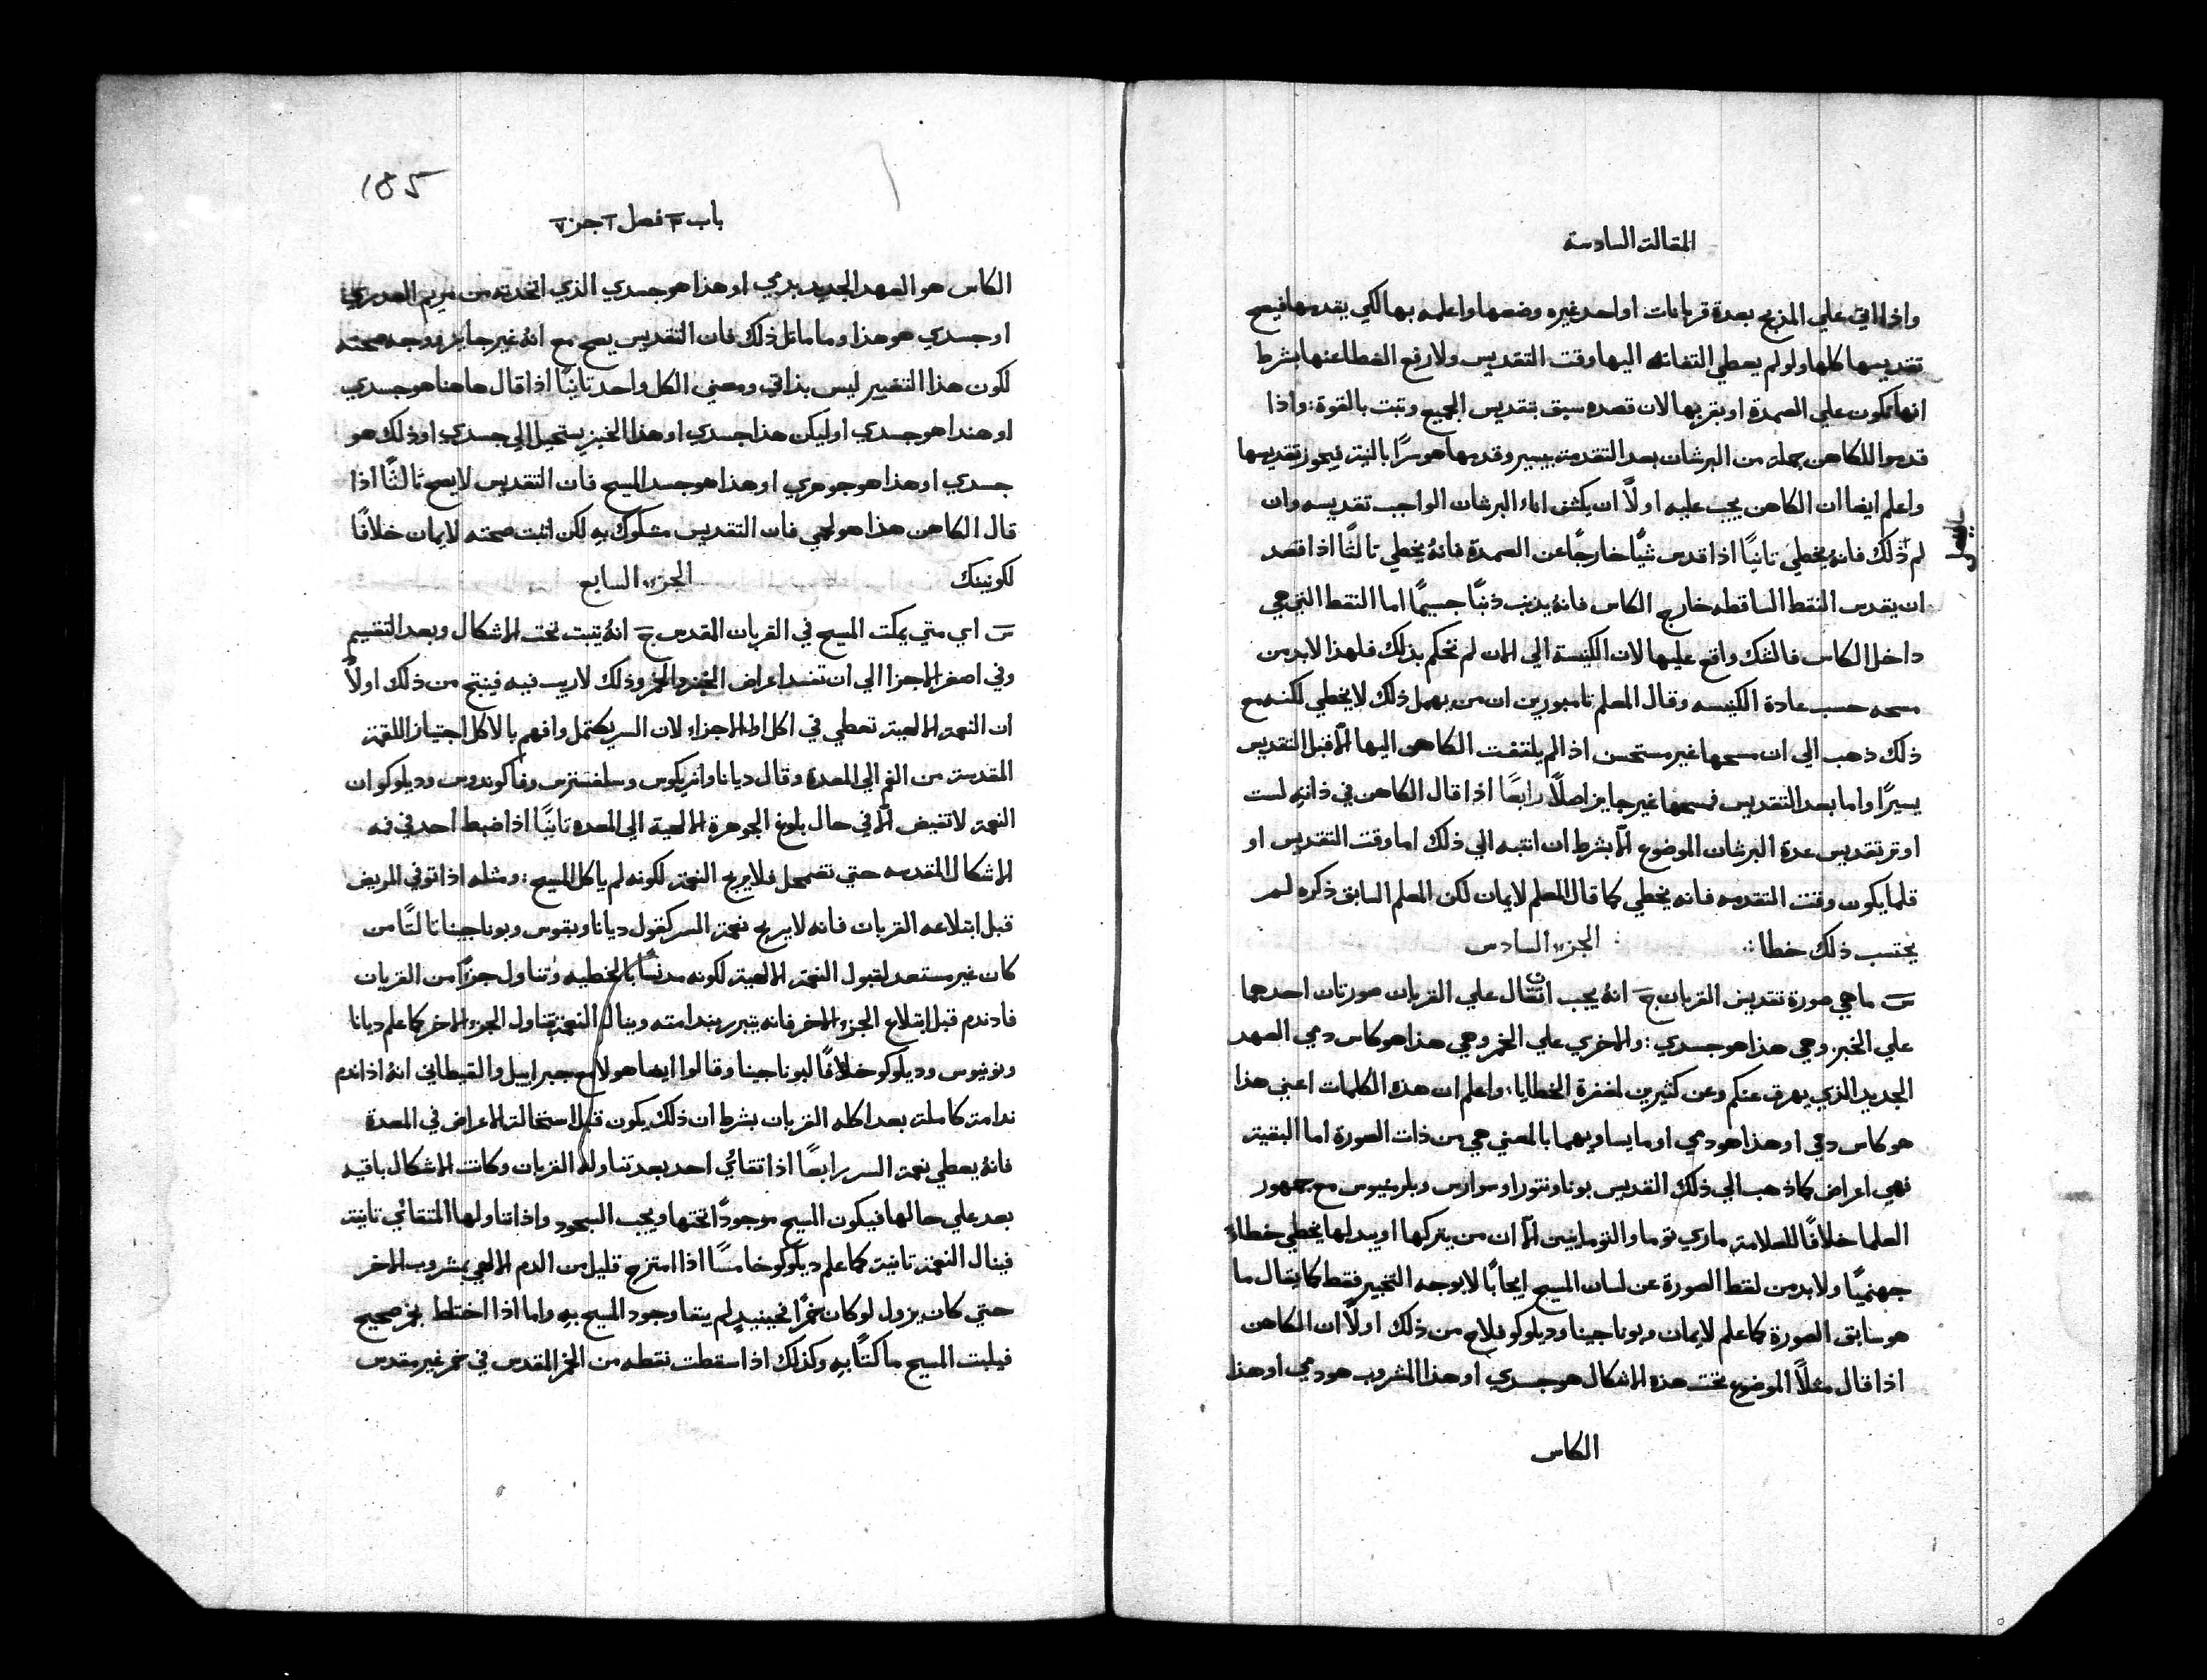 المقالة السادسة
واذا اتي علي المذبح بعدة قربانات او احد غيره وضعها واعلمه بها لكي يقدسها فيصح
تقديسها كلها ولو لم يعطي التفاته اليها وقت التقديس ولا رفع الغطا عنها بشرط
انها تكون علي الصمدة او بقربها لان قصده سبق بتقديس الجميع وتبت بالقوة: واذا
قدموا للكاهن جملة من البرشان بعد التقدمة بيسير وقدمها هو سرًا بالنية فيجوز تقديسها
واعلم ايضا ان الكاهن يجب عليه اولًا ان يكشف اناء البرشان الواجب تقديسه وان
لم ذلك فانهُ يخطي تانيًا اذا قدس شيًا خارجًا عن الصمدة فانهُ يخطي تالتًا اذا قصد
ان يقدس النقط الساقطه خارج الكاس فانهُ يذنب ذنبًا جسيمًا اما النقط التي هي
داخل الكاس فالشك واقع عليها لان الكنيسة الي الان لم تحكم بذلك فلهذا لابد من
مسحه حسب عادة الكنيسه وقال المعلم تامبورين ان من يهمل ذلك لا يخطي لكنه مع
ذلك ذهب الي ان مسحها غير مستحسن اذ لم يلتفت الكاهن اليها الّا قبل التقديس
يسيرًا واما بعد التقديس فمسحها غير جايز اصلًا رابعًا اذا قال الكاهن في ذاتهِ لست
اوثر تقديس عدة البرشان الموضوع الّا بشرط ان انتبه الي ذلك اما وقت التقديس او
قلما يكون وقت التقدمه فانه يخطي كما قال المعلم لايمان لكن المعلم السابق ذكره لم
يحتسب ذلك خطا: الجزء السادس
س ما هي صورة تقديس القربان ج انهُ يجب ان تقال علي القربان صورتان احدهما
علي الخبز وهي هذا هو جسدي: والاخري علي الخمر وهي هذا هو كاس دمي العهد
الجديد الذي يهرق عنكم وعن كثيرين لمغفرة الخطايا: واعلم ان هذه الكلمات اعني هذا
هو كاس دمي او هذا هو دمي او ما يساويهما بالمعني هي من ذات الصورة اما البقية
فهي اعراض كما ذهب الي ذلك القديس بوناونتورا وسوارس وبلرمنيوس مع جمهور
العلما خلافًا للعلامة ماري توما والتومانيين الّا ان من يتركها او يبدلها يخطي خطاءً
جهنميًا ولا بد من لفظ الصورة عن لسان المسيح ايجابًا لا بوجه التخبير فقط كما يقال ما
هو سابق الصورة كما علم لايمان وبوناجينا وديلوكو فلاح من ذلك اولًا ان الكاهن
اذا قال مثلًا الموضوع تحت هذه الاشكال هو جسدي او هذا المشروب هو دمي او هذا
الكاس
185
باب ٣ فصل ٢ جز ٧
الكاس هو العهد الجديد بدمي او هذا هو جسدي الذي اتخذته من مريم العدري
او جسدي هو هذا وما ماتل ذلك فان التقديس يصح مع انهُ غير جايز ووجه صحته
لكون هذا التغيير ليس بذاتي ومعني الكل واحد تانيًا اذا قال هاهنا هو جسدي
او هندا هو جسدي او ليكن هذا جسدي او هذا الخبز يستحيل الي جسدي او ذلك هو
جسدي او هذا هو جوهري او هذا هو جسد المسيح فان التقديس لا يصح ثالثًا اذا
قال الكاهن هذا هو لحمي فان التقديس مشكوك بهِ لكن اتبت صحته لايمان خلافًا
لكونينك الجزء السابع
س اي متي يمكت المسيح في القربان المقدس ج انهُ يتبت تحت الاشكال وبعد التقسيم
وفي اصغر الاجزا الي ان تفسد اعراض الخبز والخمر وذلك لا ريب فيه فينتج من ذلك اولًا
ان النعمة الالهية تعطي في اكل اول الاجزاء لان السر يكتمل وافهم بالاكل اجتياز اللقمة
المقدسة من الفم الي المعدة وقال ديانا وانريكوس وسلفسترس وفاكوندوس وديلوكو ان
النعمة لا تفيض الّا في حال بلوغ الجوهرة الالهية الي المعده تانيًا اذا ضبط احد في فمه
الاشكال المقدسه حتي تضمحل فلا يربح النعمة لكونه لم ياكل المسيح: ومثله اذا توفي المريض
قبل ابتلاعه القربان فانه لا يربح نعمة السر كقول ديانا وبقوس وبوناجينا تالتًا من
كان غير مستعد لقبول النعمة الالهية لكونه مدنسًا بالخطيه وتناول جزًا من القربان
فاذ ندم قبل ابتلاع الجزء الاخر فانه يتبرر بندامته وينال النعمة بتناول الجزء الاخر كما علم ديانا
ونونيوس وديلوكو خلافًا لبوناجينا وقالوا ايضا هولا مع جبراييل والقيطاني انهُ اذا ندم
ندامة كاملة بعد اكله القربان بشرط ان ذلك يكون قبل استحالة الاعراض في المعدة
فانهُ يعطي نعمة السر رابعًا اذا تقائي احد بعد تناوله القربان وكانت الاشكال باقيه
بعد علي حالها فيكون المسيح موجودًا تحتها ويجب السجود واذا تناولها المتقائي تانية
فينال النعمة تانية كما علم ديلوكو خامسًا اذا امتزج قليل من الدم الالهي بمشروب اخر
حتي كان يزول لو كان خمرًا فحينيدٍ لم يتقا وجود المسيح بهِ واما اذا اختلط بخمر صحيح
فيلبت المسيح ماكتًا بهِ وكذلك اذا سقطت نقطه من الخمر المقدس في خمر غير مقدس